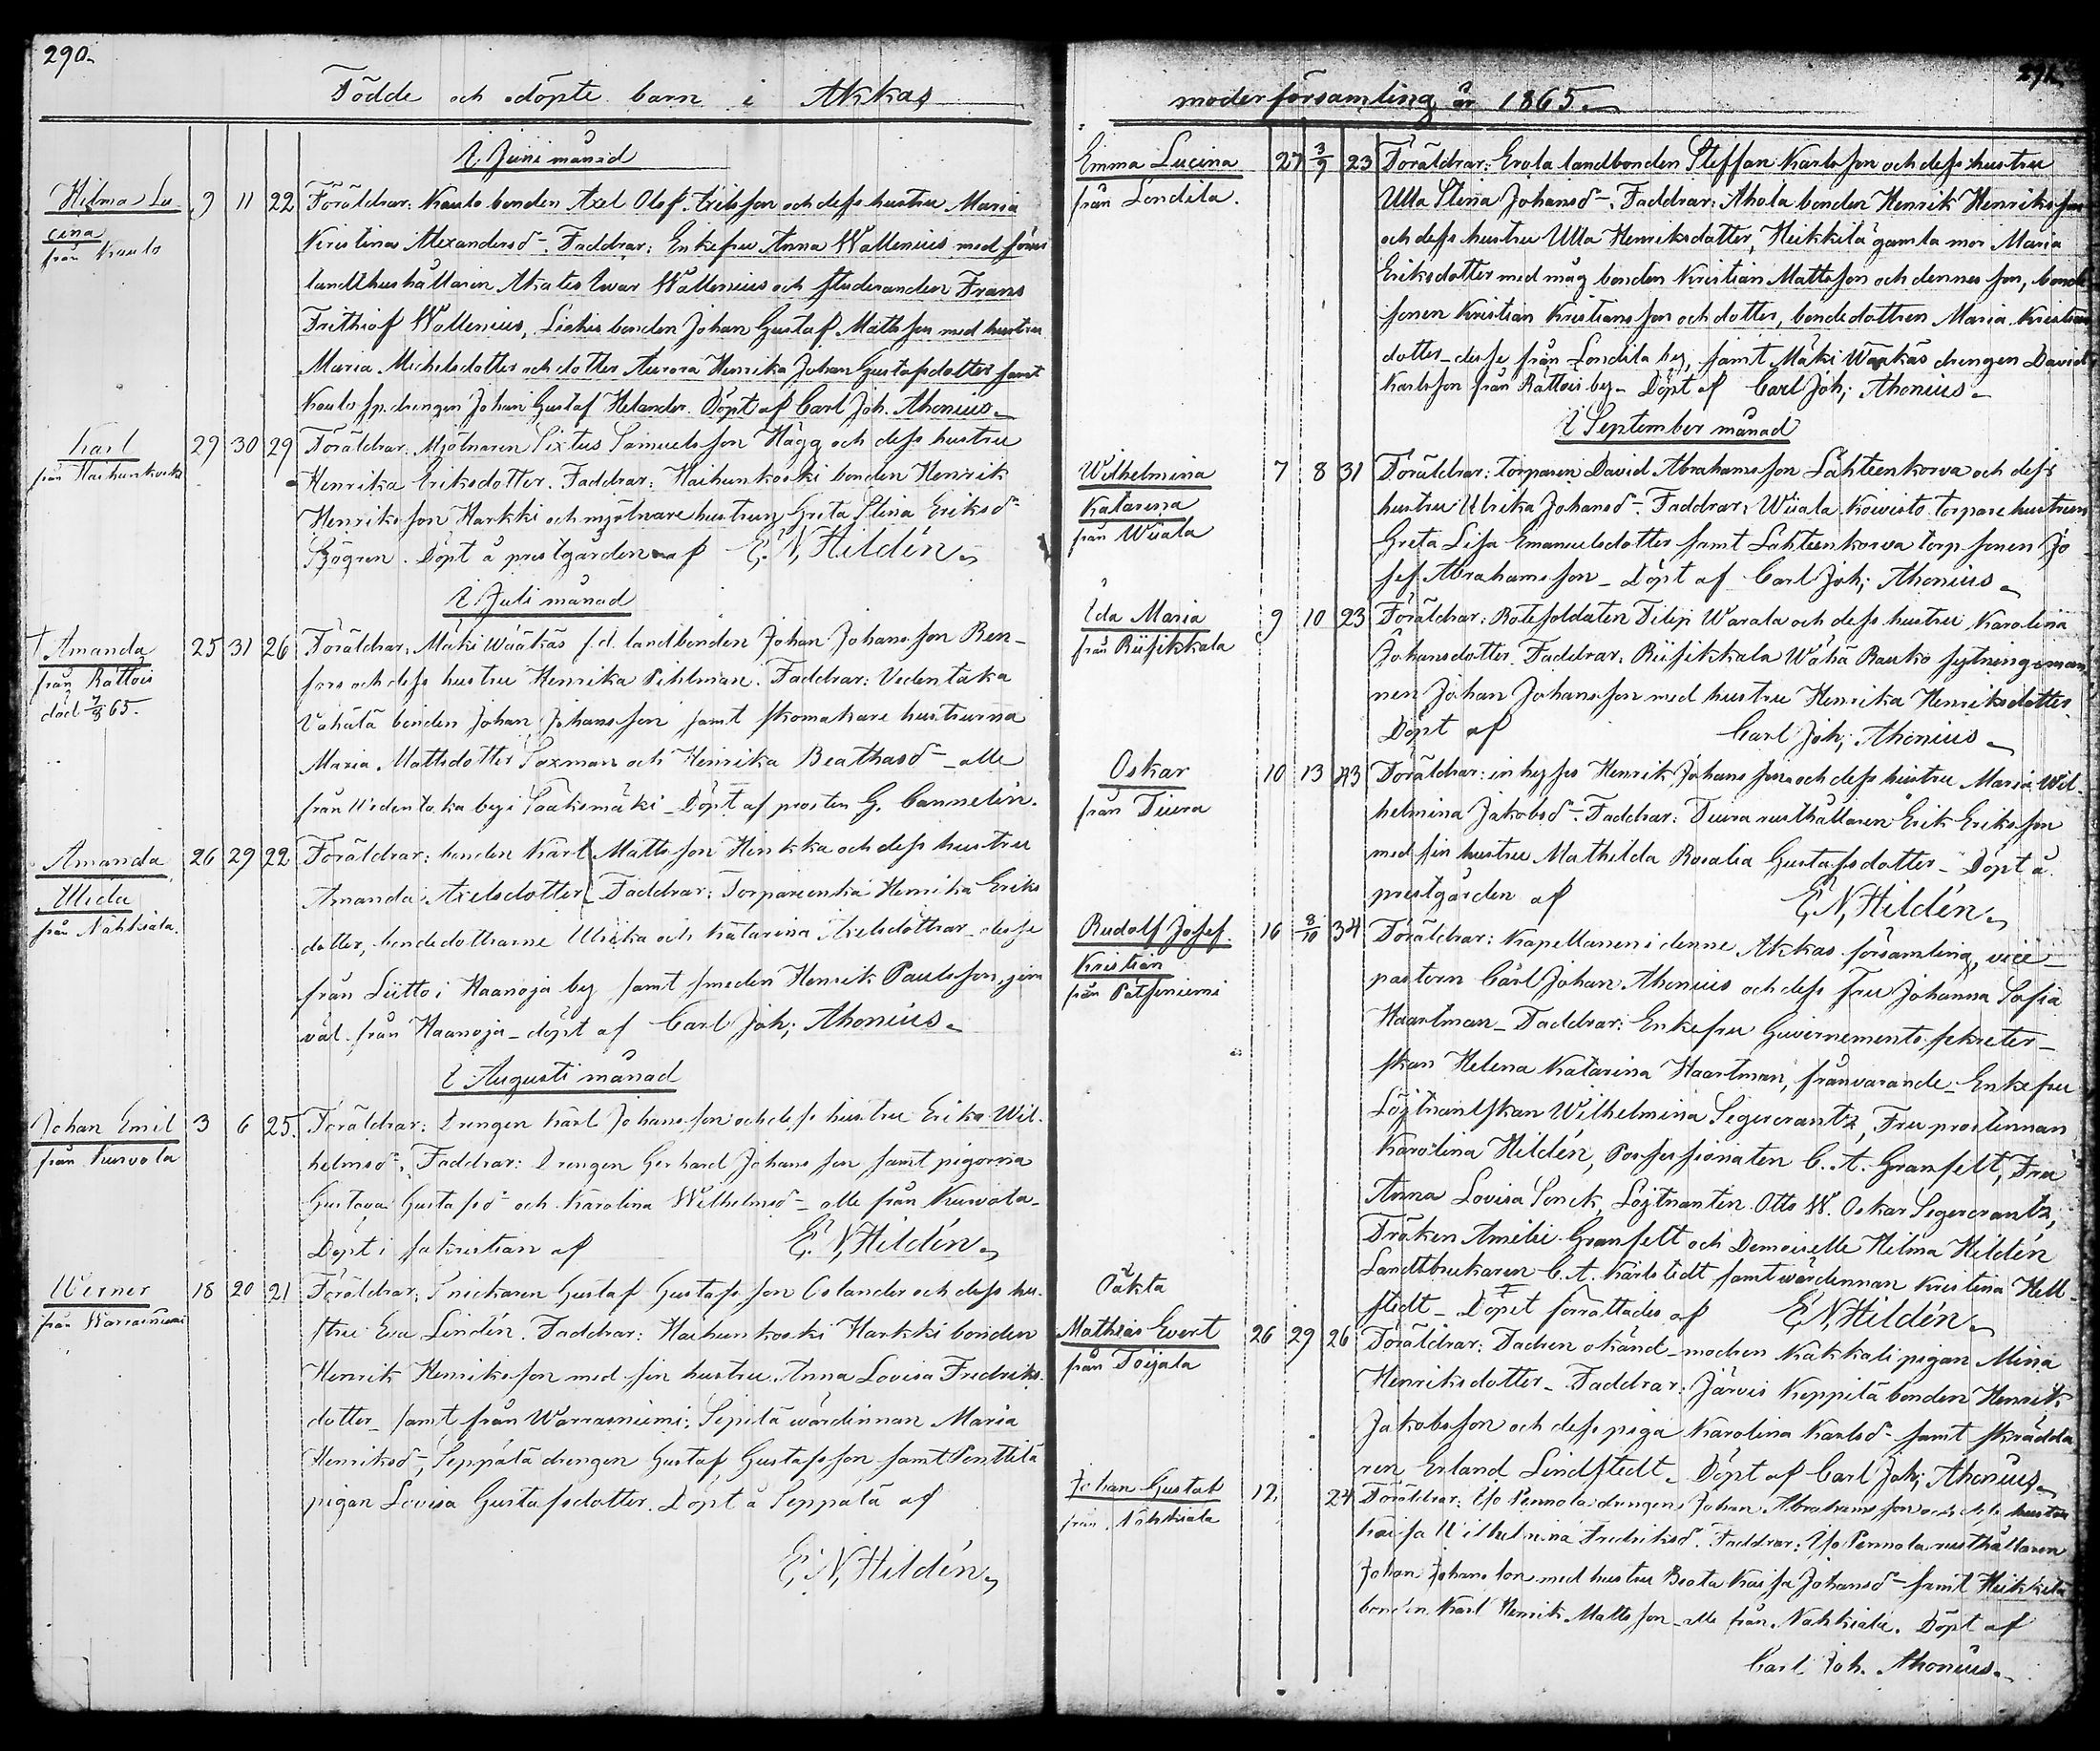 290.
Födde och döpte barn i Akkas
I Juni månad
Hilma Lu
cina
från Kaulo
9 11 22 Föräldrar: Kaulo bonden Axel Olof Axelsson och dess hustru Maria
Kristina Alexandersd. Faddrar: Enkefru Anna Wallenius med söner
landthushållaren Akates Iwar Wallenius och studeranden Frans
Frithiof Wallenius, bonden Johan Gustaf Mattsson med hustru
Maria Michelsdotter och dotter Aurora Henrika Johan Gustafsdotter samt
Kaulo sp. drengen Johan Gustaf Helander. Döpt af Carl Joh. Ahonius.
Karl
från Haihunkoski
29 30 29 Föräldrar: Mjölnaren Sixtus Samuelsson Hägg och dess hustru
Henrika Eriksdotter. Faddrar: Haihunkoski bonden Henrik
Henriksson Harkki och mjölnare hustrun Greta Stina Eriksd
Sjögren. Döpt å prestgården af E. N. Hildén.
I Juli månad
† Amanda
från Rättöis
död 65.
25 31 26 Föräldrar: Mäki Wääkäs f.d. landbonden Johan Johansson
och dess hustru Henrika Pihlman. Faddrar: Uedentaka
bonden Johan Johansson samt skomakare hustrurna
Maria Mattsdotter Saxman och Henrika Beathasd - alle
från Uedentaka by i Sääksmäki - Döpt af prosten G. Cannelin.
Amanda
Alida
från Nahkiala.
26 29 22 Föräldrar: bonden Karl Mattsson Heikka och dess hustru
Amanda Axelsdotter Faddrar: Torpareenka Henrika Eriks
dotter, bondedöttrarne Ulrika och Katarina Axelsdöttrar - desse
från Liitto i Haanoja by samt smeden Henrik Paulsson, jem
väl från Haanoja - döpt af Carl Joh; Ahonius.
I Augusti månad
Johan Emil
från Kurvola
3 6 25. Föräldrar: Drengen Karl Johansson och dess hustru Erika Wil-
helmsd. Faddrar: Drengen Gerhard Johansson samt pigorna
Gustava Gustafsd och Karolina Wilhelmsd - alle från Kurvola -
Döpt i sakristian af E. N. Hildén.
Werner
från Warrasniemi
18 20 21 Föräldrar: Snickaren Gustaf Gustafsson Oslander och dess hu-
stru Eva Lindén. Faddrar: Haihunkoski Harkki bonden
Henrik Henriksson med sin hustru Anna Lovisa Fredriks-
dotter - samt från Warrasniemi: Sepilä wärdinnan Maria
Henriksd, Seppälä drengen Gustaf Gustafsson samt Penttilä
pigan Lovisa Gustafsdotter. Döpt å Seppälä af
E. N. Hildén.
291.
moderförsamling år 1865.
Emma Lucina
från Londila.
27 3/9 23 Föräldrar: Erola landbonden Steffan Karlsson och dess hustru
Ulla Stina Johansd. Faddrar: Ahola bonden Henrik Henriksson
och dess hustru Ulla Henriksdotter, Heikkilä gamla mor Maria
Eriksdotter med måg bonden Kristian Mattsson och dennes son, bonde
sonen Kristian Kristiansson och dotter, bondedottren Maria Kristians
dotter - desse från Londila by, samt Mäki Wääkäs drengen David
Karlsson från Rättöis by - Döpt af Carl Joh; Ahonius.
I September månad
Wilhelmina
Katarina
från Wiiala
7 8 31 Föräldrar: torparen David Abrahamsson Lähteenkorva och dess
hustru Ulrika Johansd. Faddrar: Wiiala Koivisto torpare hustrun
Greta Lisa Emanuelsdotter samt Lähteenkorva torp sonen Jo
sef Abrahamsson - Döpt af Carl Joh; Ahonius.
Ida Maria
från Riisikkala
9 10 23 Föräldrar: Rotesoldaten Filip Warala och dess hustru Karolina
Johansdotter. Faddrar: Riisikkala Wähä Rauko sytningsman
nen Johan Johansson med hustru Henrika Henriksdotter
Döpt af Carl Joh; Ahonius.
Oskar
från Tiura
10 13 43 Föräldrar: inhyses Henrik Johansson och dess hustru Maria Wil-
helmina Jakobsd. Faddrar: Tiura rusthållaren Erik Eriksson
med sin hustru Mathilda Rosalia Gustafsdotter - Döpt å
prestgården af E. N. Hildén.
Rudolf Josef
Kristian
från Pätsiniemi
16 8/10 34 Föräldrar: Kapellanen i denne Akkas församling, vice-
pastorn Carl Johan Ahonius och dess Fru Johanna Sofia
Haartman - Faddrar: Enkefru Guvernements sekreter-
skan Helena Katarina Haartman, frånvarande - Enkefru
Löjtnantskan Wilhelmina Segercrantz, Fru prostinnan
Karolina Hildén, Possessionaten C. A. Granfelt, Fru
Anna Lovisa Sonck, Löjtnanten Otto W. Oskar Segercrantz,
Fröken Amelie Granfelt och Demoiselle Hilma Hildén
Landtbrukaren C. A. Karlstedt samt wärdinnan Kristina Hell-
stedt - Döpet förrättades af E. N. Hildén.
Oäkta
Mathias Evert
från Toijala
26 29 26 Föräldrar: Fadren okänd - modren Kakkali pigan Mina
Henriksdotter - Faddrar: Järvis Keppilä bonden Henrik
Jakobsson och dess piga Karolina Karlsd - samt skrädda
ren Erland Lindstedt. Döpt af Carl Joh; Ahonius.
Johan Gustaf
från Nahkiala
12 24 Föräldrar: Yso Pennola drengen Johan Abrahamsson och dess hustru
Kaisa Wilhelmina Fredriksd. Faddrar: Yso Pennola rusthållaren
Johan Johansson med hustru Beata Kaisa Johansd - samt Heikkilä
bonden Karl Henrik Mattsson - alle från Nahkiala. Döpt af
Carl Joh. Ahonius.